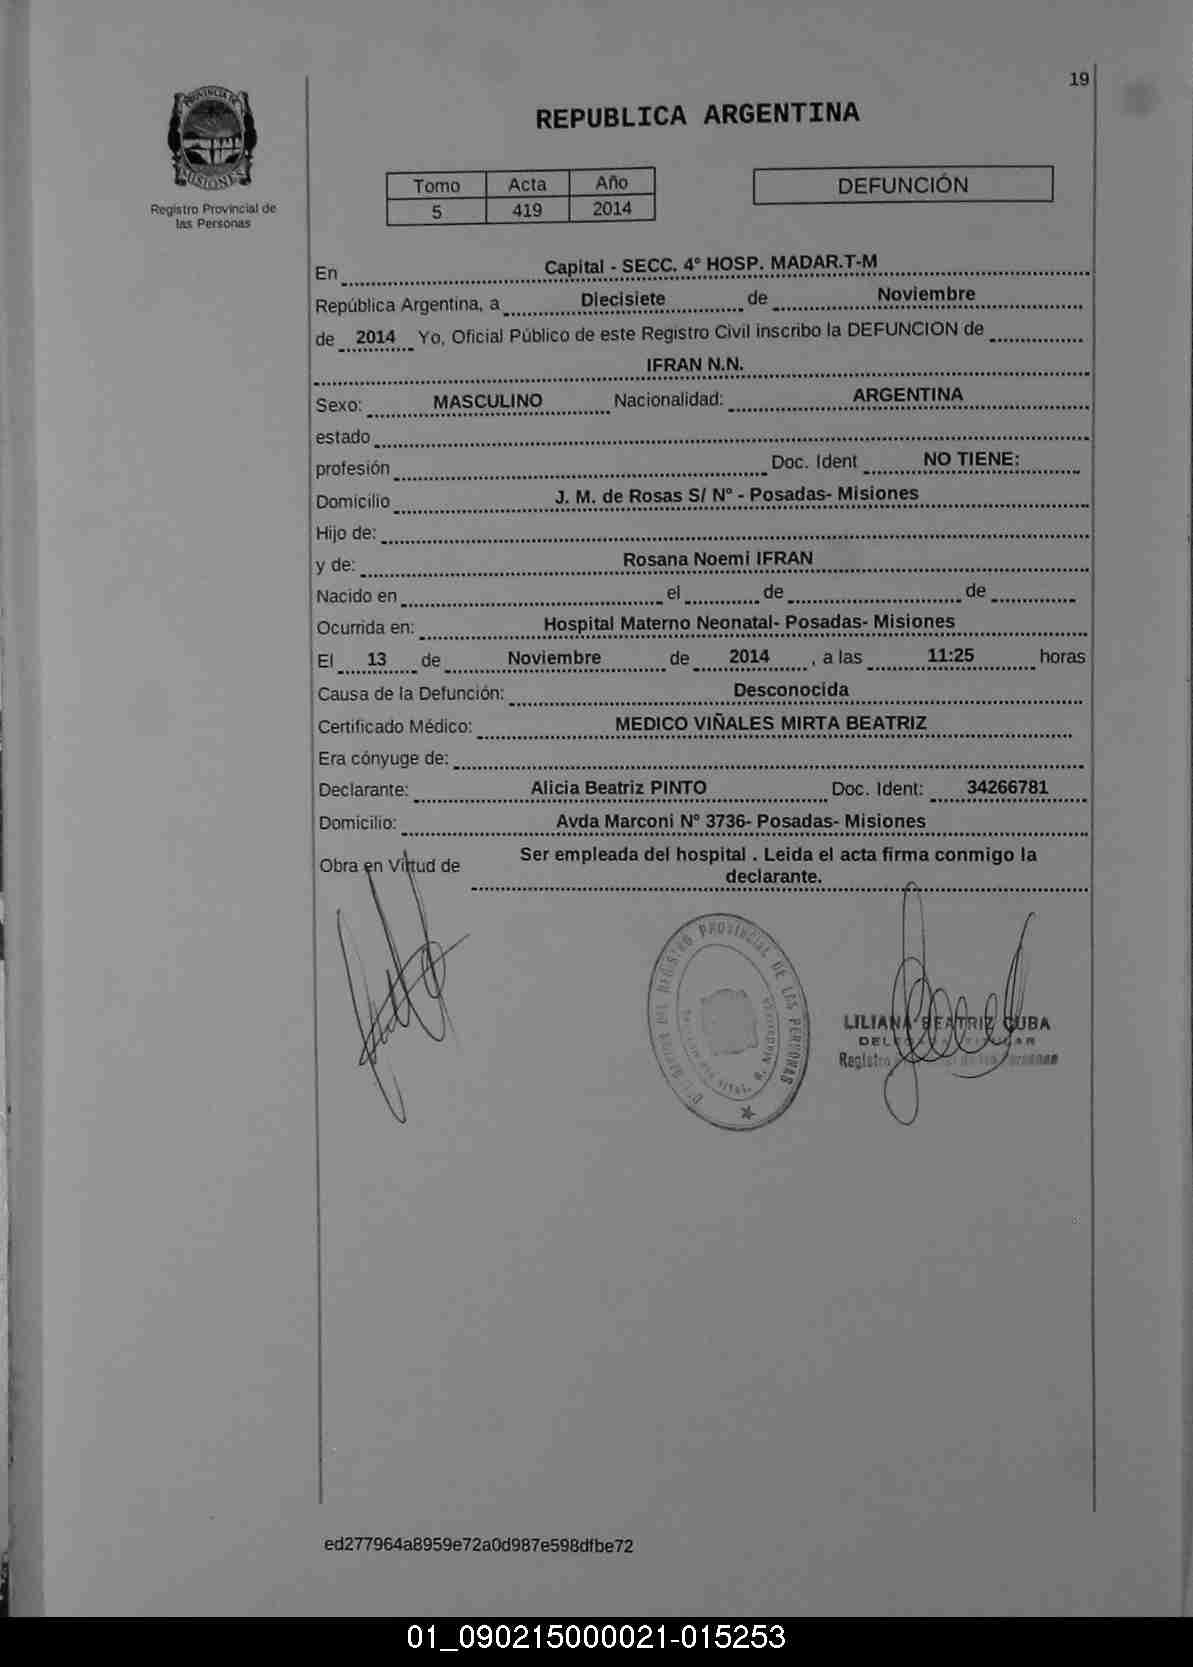 19
PROVINCIA DE
MISIONES
Registro Provincial de
las Personas
REPUBLICA ARGENTINA
Tomo Acta Año
5 419 2014
DEFUNCIÓN
En Capital - SECC. 4º HOSP. MADAR.T-M
República Argentina, a Diecisiete de Noviembre
de 2014 Yo, Oficial Público de este Registro Civil inscribo la DEFUNCION de
IFRAN N.N.
Sexo: MASCULINO Nacionalidad: ARGENTINA
estado
profesión Doc. Ident NO TIENE:
Domicilio J. M. de Rosas S/ Nº - Posadas- Misiones
Hijo de:
y de: Rosana Noemi IFRAN
Nacido en el de de
Ocurrida en: Hospital Materno Neonatal- Posadas- Misiones
El 13 de Noviembre de 2014 , a las 11:25 horas
Causa de la Defunción: Desconocida
Certificado Médico: MEDICO VIÑALES MIRTA BEATRIZ
Era cónyuge de:
Declarante: Alicia Beatriz PINTO Doc. Ident: 34266781
Domicilio: Avda Marconi Nº 3736- Posadas- Misiones
Obra en Virtud de Ser empleada del hospital . Leida el acta firma conmigo la
declarante.
REGISTRO PROVINCIAL DE LAS PERSONAS
LILIANA BEATRIZ CUBA
Registro de las Personas
ed277964a8959e72a0d987e598dfbe72
01_090215000021-015253